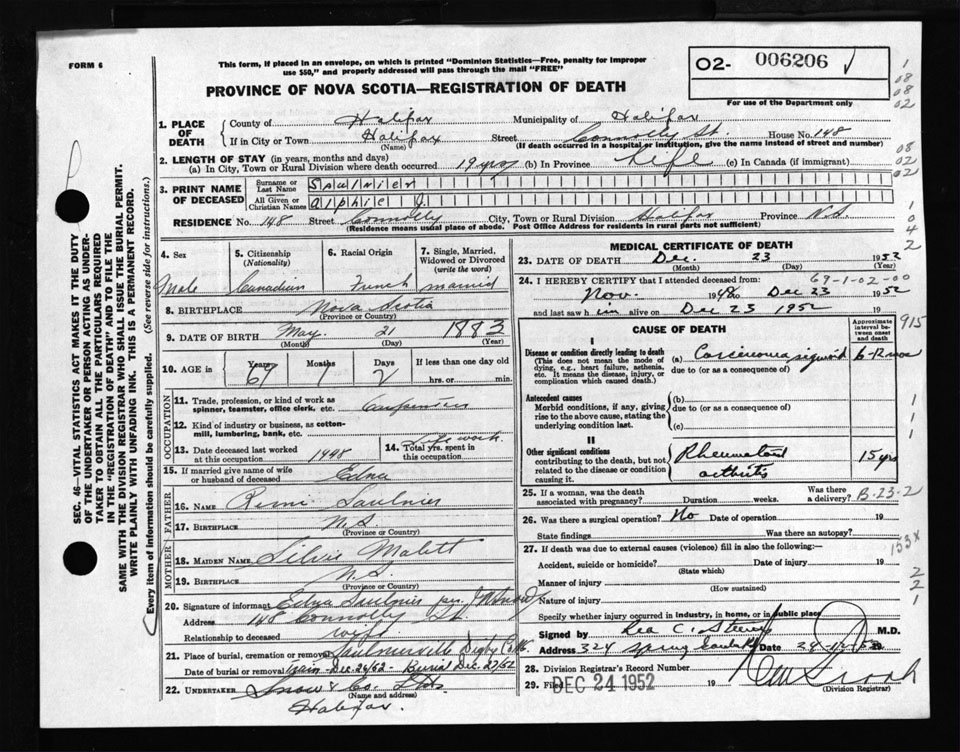 FORM 6
This form, if placed in an envelope, on which is printed "Dominion Statistics—Free, penalty for improper
use $50," and properly addressed will pass through the mail "FREE"
02- 006206
For use of the Department only
PROVINCE OF NOVA SCOTIA—REGISTRATION OF DEATH
1
08
08
02
08
02
02
1
0
4
2
SEC. 46—VITAL STATISTICS ACT MAKES IT THE DUTY
OF THE UNDERTAKER OR PERSON ACTING AS UNDER-
TAKER TO OBTAIN ALL THE PARTICULARS REQUIRED
IN THE "REGISTRATION OF DEATH" AND TO FILE THE
SAME WITH THE DIVISION REGISTRAR WHO SHALL ISSUE THE BURIAL PERMIT.
WRITE PLAINLY WITH UNFADING INK. THIS IS A PERMANENT RECORD.
Every item of information should be carefully supplied. (See reverse side for instructions.)
1. PLACE OF DEATH
County of Halifax Municipality of Halifax
If in City or Town Halifax Street Connolly St. House No. 148
(Name) (If death occurred in a hospital or institution, give the name instead of street and number)
2. LENGTH OF STAY (in years, months and days)
(a) In City, Town or Rural Division where death occurred 19 yrs (b) In Province Life (c) In Canada (if immigrant)
3. PRINT NAME OF DECEASED
Surname or Last Name Saulnier
All Given or Christian Names Alphie J.
RESIDENCE No. 148 Street Connolly City, Town or Rural Division Halifax Province N.S.
(Residence means usual place of abode. Post Office Address for residents in rural parts not sufficient)
4. Sex
Male
5. Citizenship
(Nationality)
Canadian
6. Racial Origin
French
7. Single, Married,
Widowed or Divorced
(write the word)
married
8. BIRTHPLACE Nova Scotia
(Province or Country)
9. DATE OF BIRTH May 21 1883
(Month) (Day) (Year)
10. AGE in Years 67 Months 1 Days 2 If less than one day
hrs. or min.
OCCUPATION
11. Trade, profession, or kind of work as
spinner, teamster, office clerk, etc. Carpenter
12. Kind of industry or business, as cotton-
mill, lumbering, bank, etc.
13. Date deceased last worked
at this occupation 1948
14. Total yrs. spent in
this occupation Life work
15. If married give name of wife
or husband of deceased Edna
FATHER
16. NAME Remi Saulnier
17. BIRTHPLACE N.S.
(Province or Country)
MOTHER
18. MAIDEN NAME
19. BIRTHPLACE N.S.
(Province or Country)
20. Signature of informant Edna Saulnier per
Address 148 Connolly St.
Relationship to deceased wife
21. Place of burial, cremation or removal Saulnierville Digby Co.
Date of burial or removal train - Dec. 26/52 - Burial Dec. 27/52
22. UNDERTAKER Snow & Co. Ltd
(Name and address)
Halifax.
MEDICAL CERTIFICATE OF DEATH
23. DATE OF DEATH Dec. 23 1952
(Month) (Day) (Year)
24. I HEREBY CERTIFY that I attended deceased from: 69-1-02-00
Nov. 1948 to Dec 23 1952
and last saw him alive on Dec 23 1952 19
915
CAUSE OF DEATH
Approximate
interval be-
tween onset
and death
I
Disease or condition directly leading to death
(This does not mean the mode of
dying, e.g., heart failure, asthenia,
etc. It means the disease, injury, or
complication which caused death.)
(a) Carcinoma sigmoid 6-12 mos
due to (or as a consequence of)
Antecedent causes
Morbid conditions, if any, giving
rise to the above cause, stating the
underlying condition last.
(b)
due to (or as a consequence of)
(c)
1
1
1
II
Other significant conditions
contributing to the death, but not
related to the disease or condition
causing it.
Rheumatoid
arthritis 15 yrs
25. If a woman, was the death
associated with pregnancy? Duration weeks. Was there
a delivery? B-23-2
26. Was there a surgical operation? No Date of operation 19
State findings Was there an autopsy?
153X
27. If death was due to external causes (violence) fill in also the following:—
Accident, suicide or homicide? Date of injury 19
(State which)
Manner of injury
(How sustained)
Nature of injury
2
2
1
Specify whether injury occurred in industry, in home, or in public place
Signed by C. M.D.
Address 324 Spring Date
28. Division Registrar's Record Number
29. Filed DEC 24 1952 19
(Division Registrar)